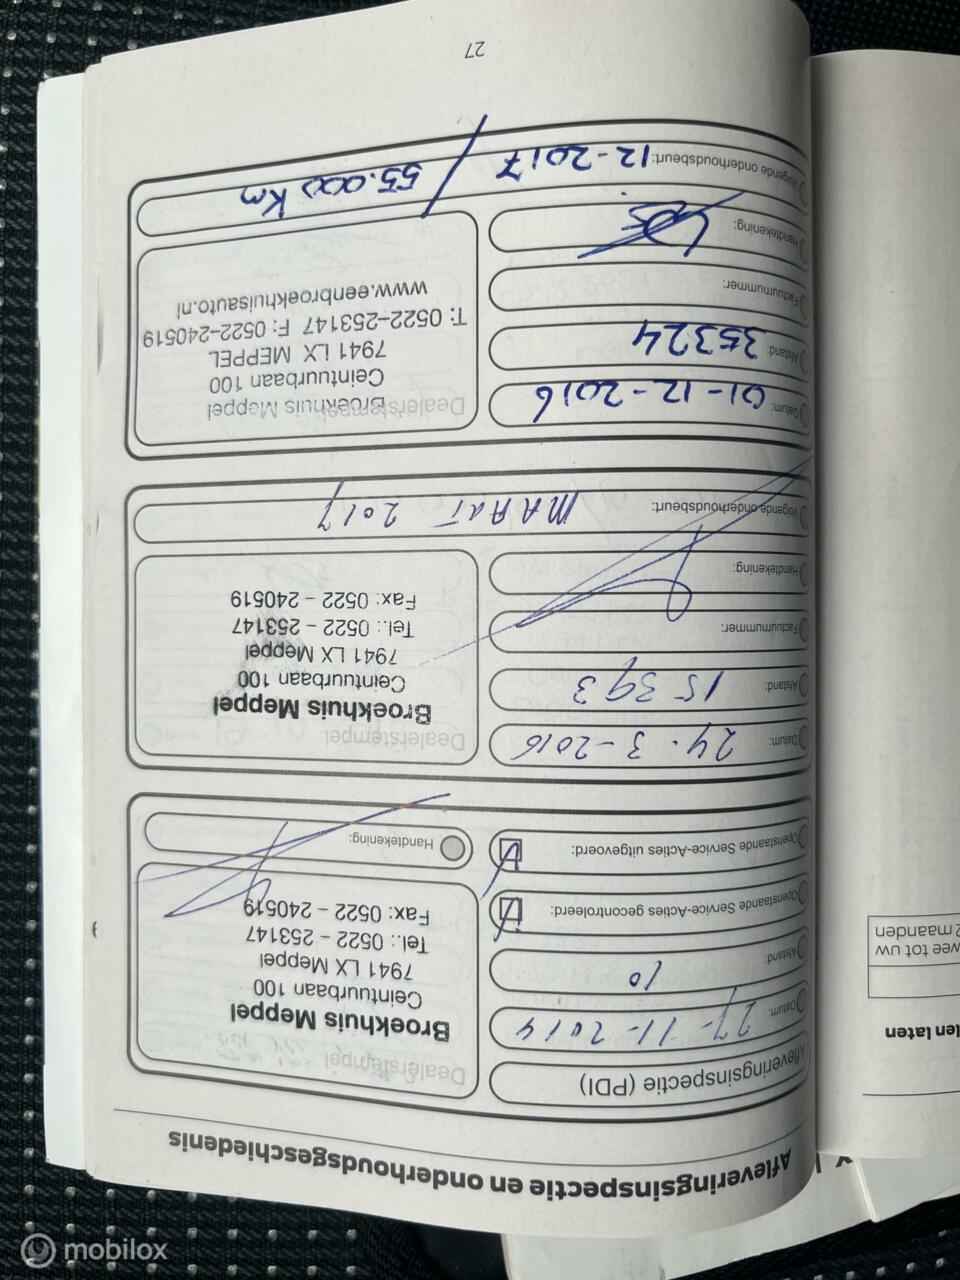 Afleveringsinspectie en onderhoudsgeschiedenis
Afleveringsinspectie (PDI)
Datum: 27-11-2014
Afstand: 10
Openstaande Service-Acties gecontroleerd:
Openstaande Service-Acties uitgevoerd:
Dealerstempel
Broekhuis Meppel
Ceintuurbaan 100
7941 LX Meppel
Tel.: 0522 - 253147
Fax: 0522 - 240519
Handtekening:
Datum: 24-3-2016
Afstand: 15393
Factuurnummer:
Handtekening:
Volgende onderhoudsbeurt: MAART 2017
Dealerstempel
Broekhuis Meppel
Ceintuurbaan 100
7941 LX Meppel
Tel.: 0522 - 253147
Fax: 0522 - 240519
Datum: 01-12-2016
Afstand: 35324
Factuurnummer:
Handtekening:
Volgende onderhoudsbeurt: 12-2017 / 55.000 Km
Dealerstempel
Broekhuis Meppel
Ceintuurbaan 100
7941 LX MEPPEL
T: 0522-253147 F: 0522-240519
www.eenbroekhuisauto.nl
27
len laten
wee tot uw
2 maanden
mobilox